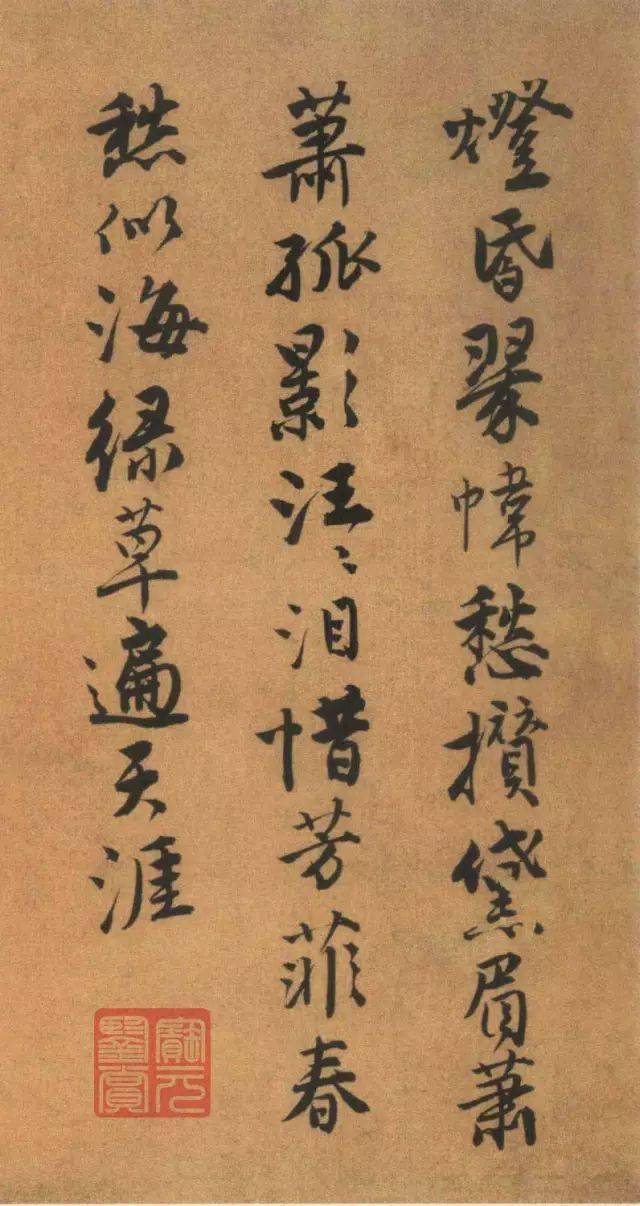 燈昏翠幃愁攢黛眉蕭
蕭孤影汪〻泪惜芳菲春
愁似海緑草遍天涯
寶元
鑒賞